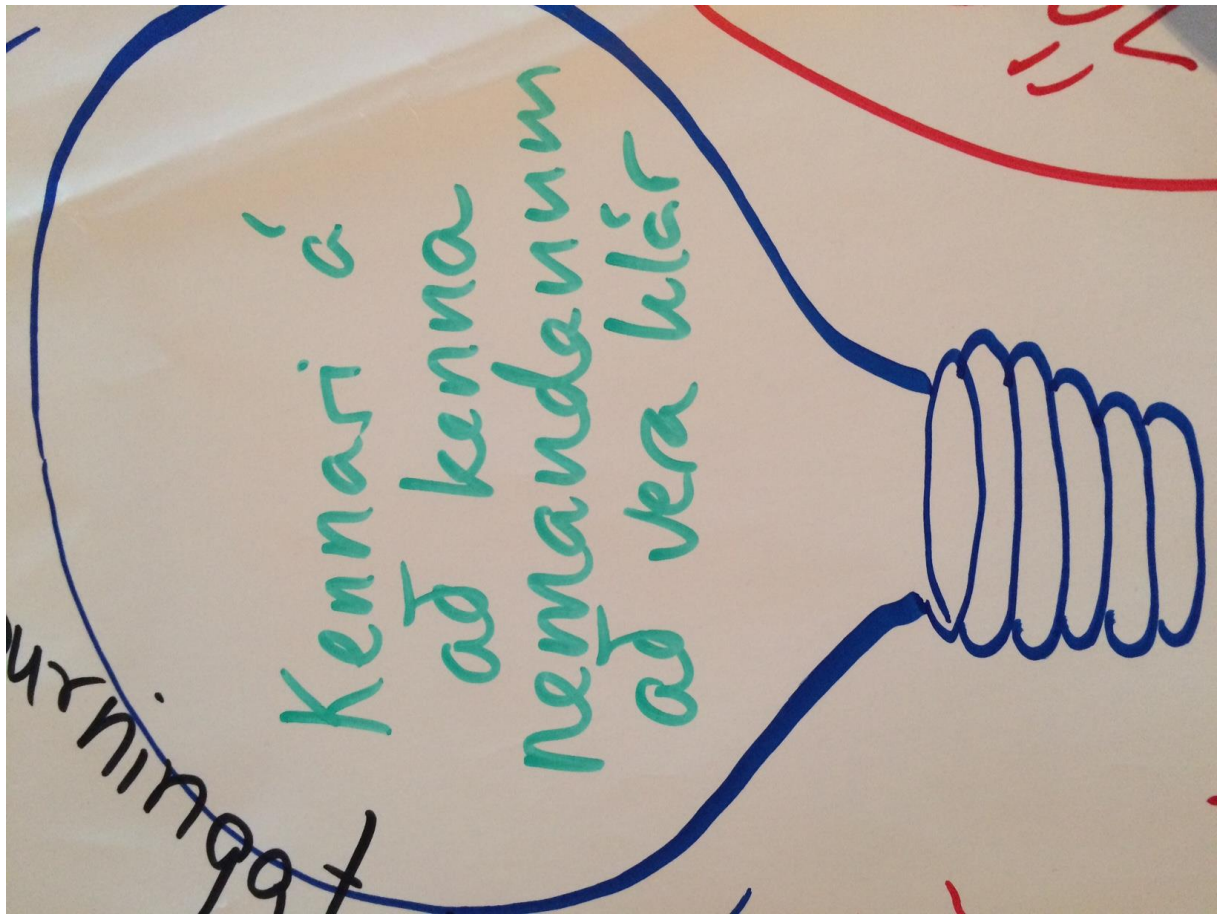 Kennari á
að kenna
nemandanum
að vera klár